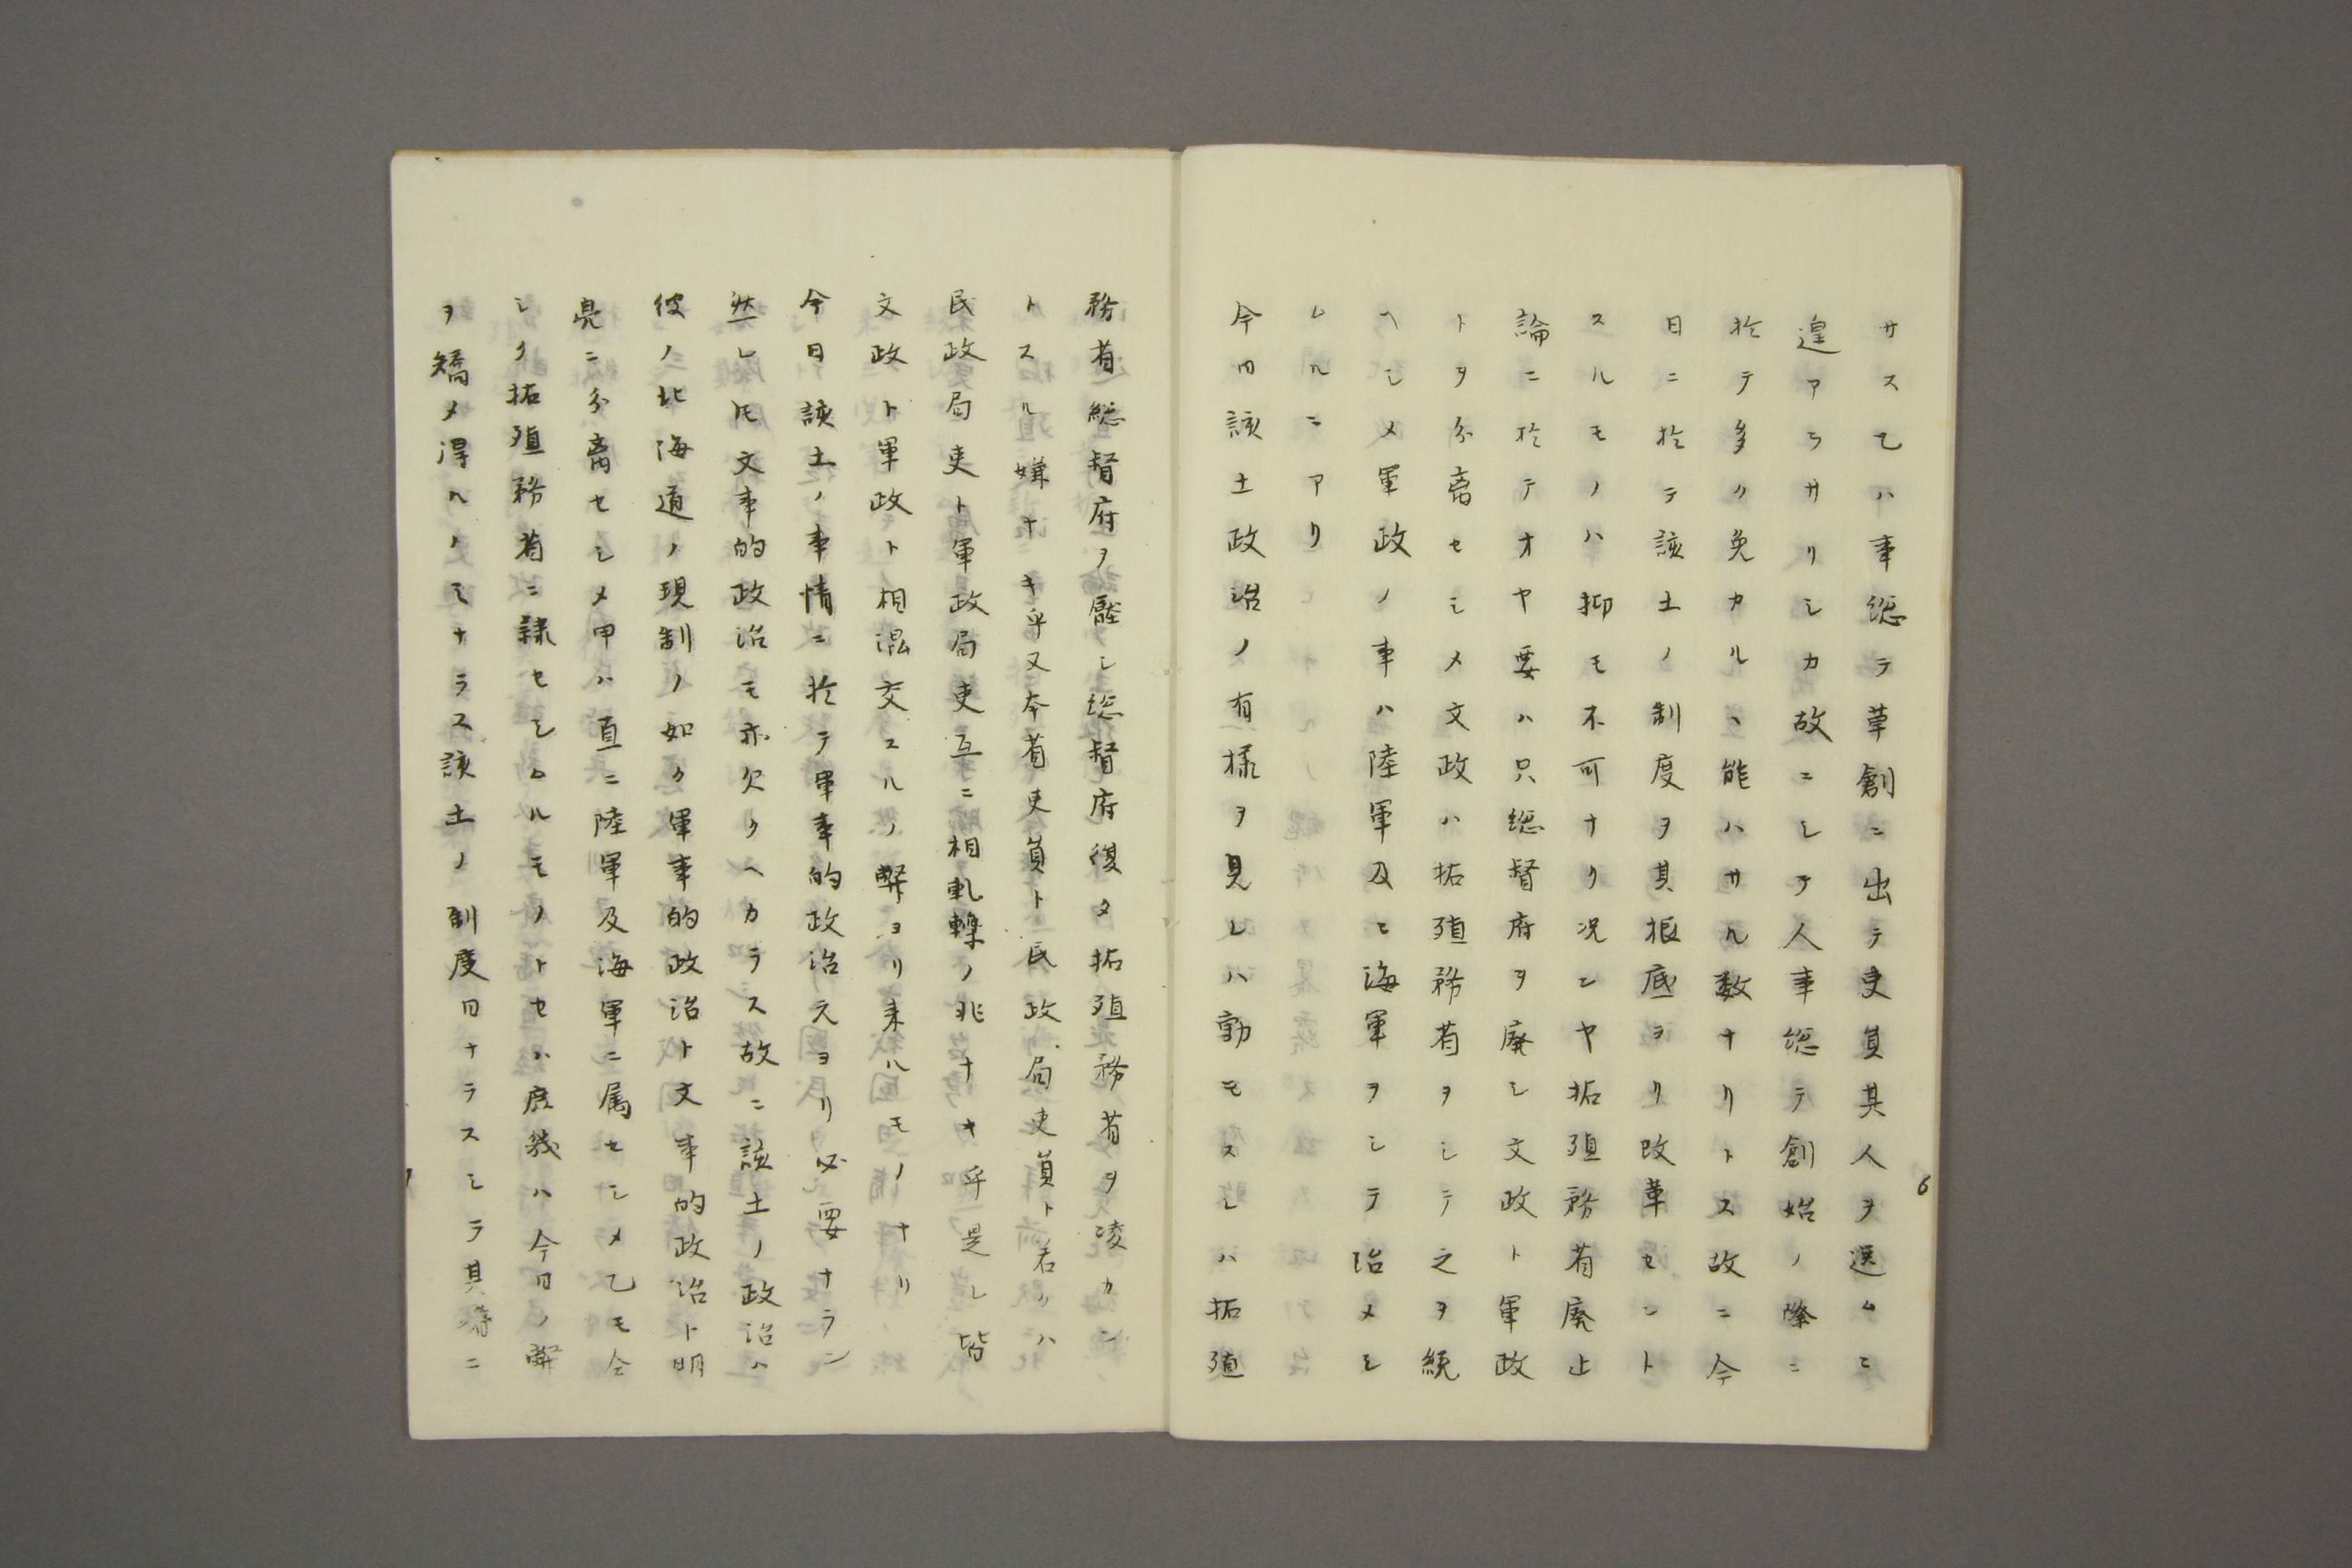 サスマハ事総テ草創ニ出テ吏員其人ヲ選ムニ
遑アラサリシカ故ニシテ人事総テ創始ノ際ニ
於テ多ク免カルヽ能ハサル数ナリトス故ニ今
日ニ於テ該土ノ制度ヲ其根底ヨリ改革セント
スルモノハ抑モ不可ナリ況ンヤ拓殖務省廃止
論ニ於テオヤ要ハ只総督府ヲ廃シ文政ト軍政
トヲ分离セシメ文政ハ拓殖務省ヲシテ之ヲ統
ヘシメ軍政ノ事ハ陸軍及ヒ海軍ヲシテ治メシ
ムルニアリ
今日該土政治ノ有様ヲ見レハ動モスレハ拓殖
務省総督府ヲ壓シ総督府復タ拓殖務省ヲ凌カン
トスル嫌ナキ乎又本省吏員ト民政局吏員ト若クハ
民政局吏ト軍政局吏互ニ相軋轢ノ兆ナキ乎是レ皆
文政ト軍政ト相混交スルノ弊ヨリ来ルモノナリ
今日該土ノ事情ニ於テ軍事的政治元ヨリ必要ナラン
然レ𪜈文事的政治モ亦欠クヘカラス故ニ該土ノ政治ハ
彼ノ北海道ノ現制ノ如ク軍事的政治ト文事的政治ト明
亮ニ分离セシメ甲ハ直ニ陸軍及海軍ニ属セシメ乙モ全
シク拓殖務省ニ隷セシムルモノトセハ庶幾ハ今日ノ弊
ヲ矯メ得ルノミナラス該土ノ制度日ナラスシテ其緒ニ
6